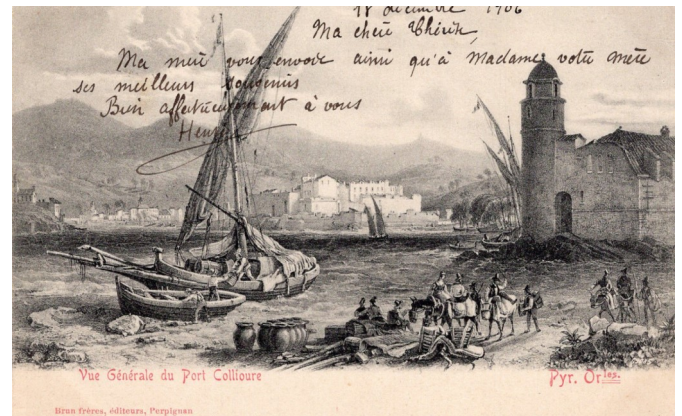 18 décembre 1906
Ma chère
Ma mère vous envoie ainsi qu'à Madame votre mère
ses meilleurs souvenirs
Bien affectueusement à vous
Henri
Vue Générale du Port Collioure
Pyr. Or.les.
Brun frères, éditeurs, Perpignan